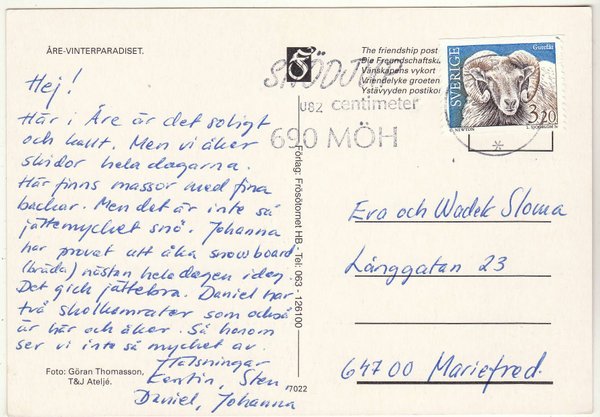 ÅRE-VINTERPARADISET.
Hej!
Här i Åre är det soligt
och kallt. Men vi åker
skidor hela dagarna.
Här finns massor med fina
backar. Men det är inte så
jättemycket snö. Johanna
har provat att åka snowboard
(bräda) nästan hela dagen idag.
Det gick jättebra. Daniel har
två skolkamrater som också
är här och åker. Så honom
ser vi inte så mycket av.
Hälsningar
Kerstin, Sten
Daniel, Johanna
Foto: Göran Thomasson,
T&J Ateljé.
7022
Förlag: Frösötornet HB - Tel: 063 - 126100
The friendship post
Die Freundschaftsk
Vänskapens vykort
Vriendelyke groeten
Ystävyyden postiko
SNÖDJUP
U82 centimeter
690 MÖH
SVERIGE
Gutefår
3,20
Eva och Wadek Sloma
Långgatan 23
647 00 Mariefred